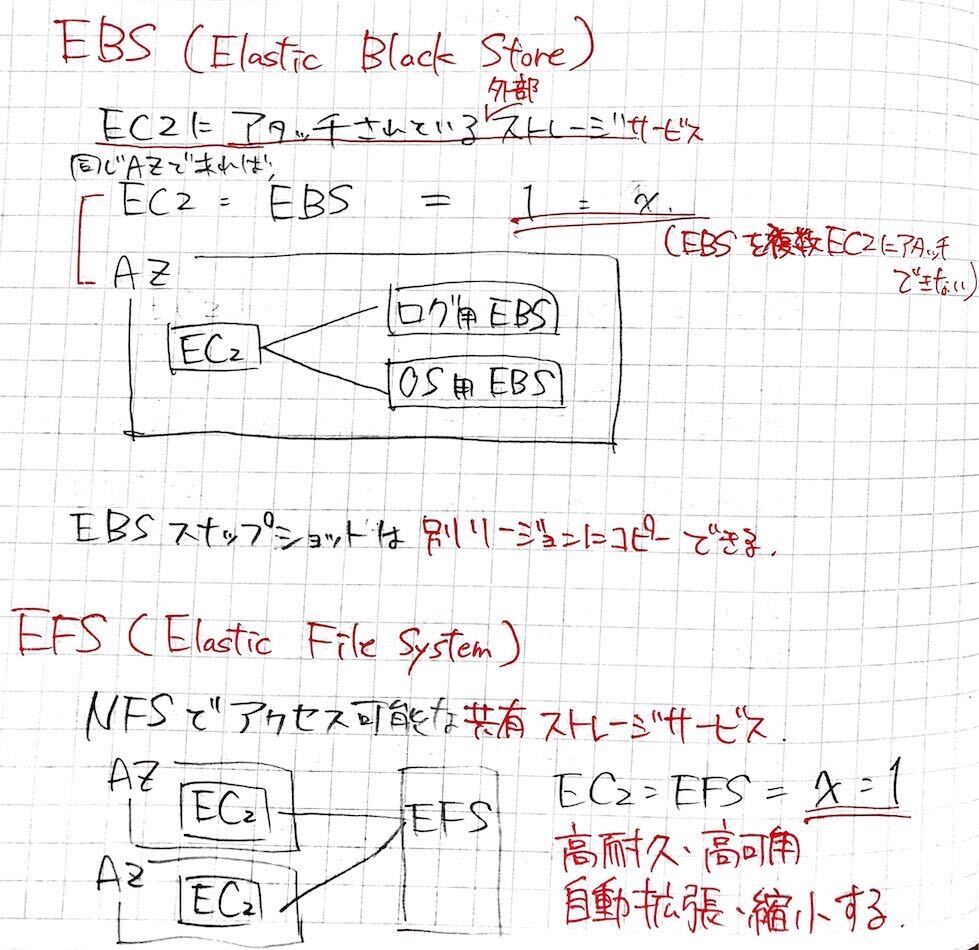 EBS (Elastic Black Store)
外部
EC2に アタッチされている ストレージサービス
同じAZであれば、
EC2 : EBS = 1 : x.
(EBSを複数EC2にアタッチ
できない)
AZ
ログ用 EBS
EC2
OS用 EBS
EBS スナップショットは 別リージョンにコピーできる.
EFS (Elastic File System)
NFSでアクセス可能な共有ストレージサービス.
AZ
EC2
EFS
EC2 = EFS = x = 1
高耐久、高可用
AZ
EC2
自動拡張、縮小する.